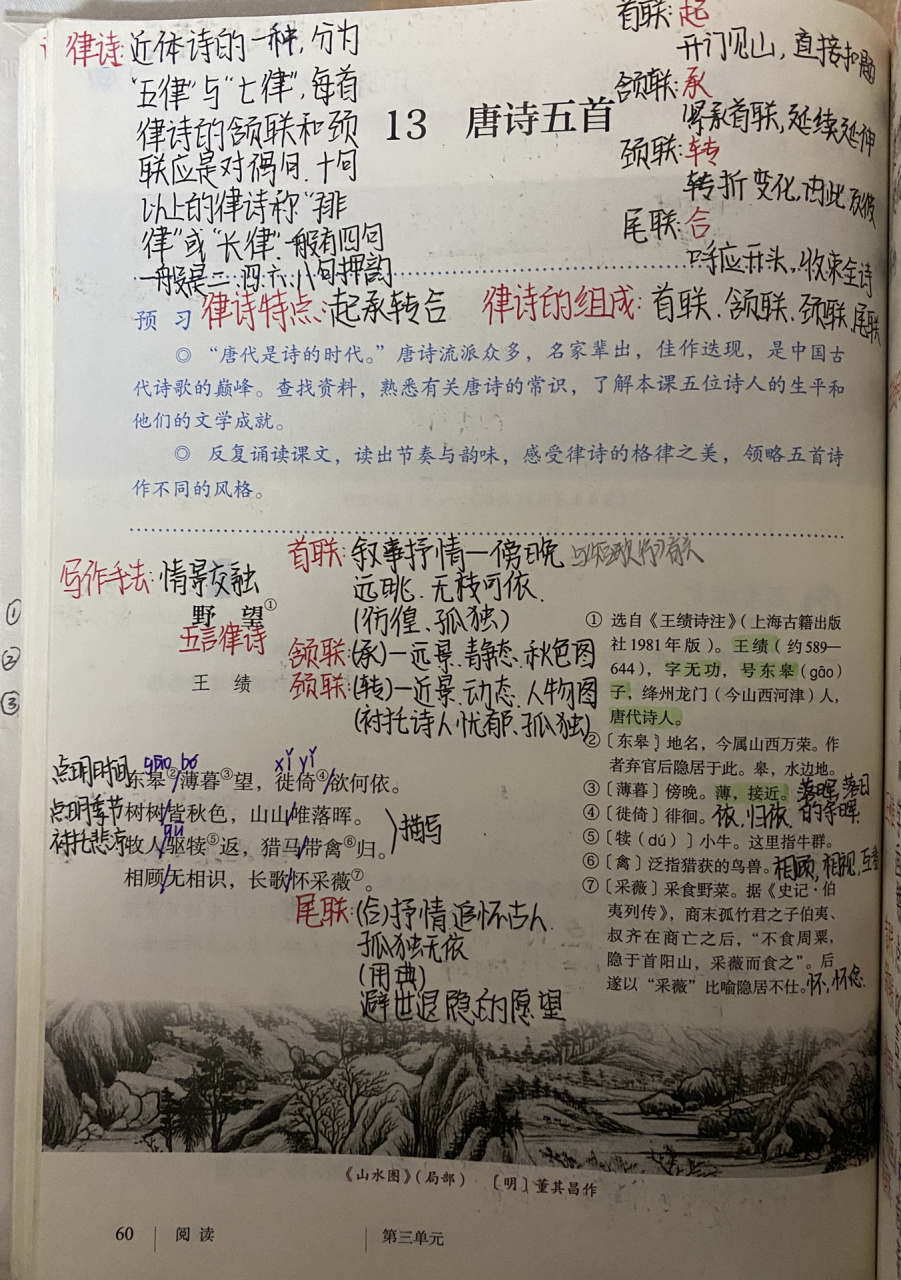 律诗:近体诗的一种,分为
"五律"与"七律",每首
律诗的颔联和颈
联应是对偶句.十句
以上的律诗称"排
律"或"长律".一般有四句
一般是二、四、六、八句押韵
首联:起
开门见山,直接扣题
颔联:承
紧承首联,延续延伸
颈联:转
转折变化,由此及彼
尾联:合
呼应开头,收束全诗
13 唐诗五首
律诗特点:起承转合
律诗的组成:首联、颔联、颈联、尾联
预 习
◎ “唐代是诗的时代。”唐诗流派众多,名家辈出,佳作迭现,是中国古
代诗歌的巅峰。查找资料,熟悉有关唐诗的常识,了解本课五位诗人的生平和
他们的文学成就。
◎ 反复诵读课文,读出节奏与韵味,感受律诗的格律之美,领略五首诗
作不同的风格。
写作手法:情景交融
野 望①
五言律诗
王 绩
首联:叙事抒情一傍晚
远眺.无枝可依.
(彷徨、孤独)
颔联:(承)一远景.静态.秋色图
颈联:(转)一近景.动态.人物图
(衬托诗人忧郁、孤独)
①
②
③
点明时间
gāo bó
xǐ yǐ
东皋②/薄暮③望,徙倚④/欲何依。
点明季节
树树/皆秋色,山山/唯落晖。
衬托悲凉
dú
牧人/驱犊⑤返,猎马/带禽⑥归。
描写
相顾/无相识,长歌/怀采薇⑦。
尾联:(合)抒情.追怀古人.
孤独无依
(用典)
避世退隐的愿望
① 选自《王绩诗注》(上海古籍出版
社1981年版)。王绩(约589—
644),字无功,号东皋(gāo)
子,绛州龙门(今山西河津)人,
唐代诗人。
②〔东皋〕地名,今属山西万荣。作
者弃官后隐居于此。皋,水边地。
③〔薄暮〕傍晚。薄,接近。
落晖,落日
的余晖.
④〔徙倚〕徘徊。
依,归依.
⑤〔犊(dú)〕小牛。这里指牛群。
⑥〔禽〕泛指猎获的鸟兽。
相顾,相视,互看
⑦〔采薇〕采食野菜。据《史记·伯
夷列传》,商末孤竹君之子伯夷、
叔齐在商亡之后,“不食周粟,
隐于首阳山,采薇而食之”。后
遂以“采薇”比喻隐居不仕。
怀,怀念.
《山水图》(局部) 〔明〕董其昌作
60 阅 读 第三单元